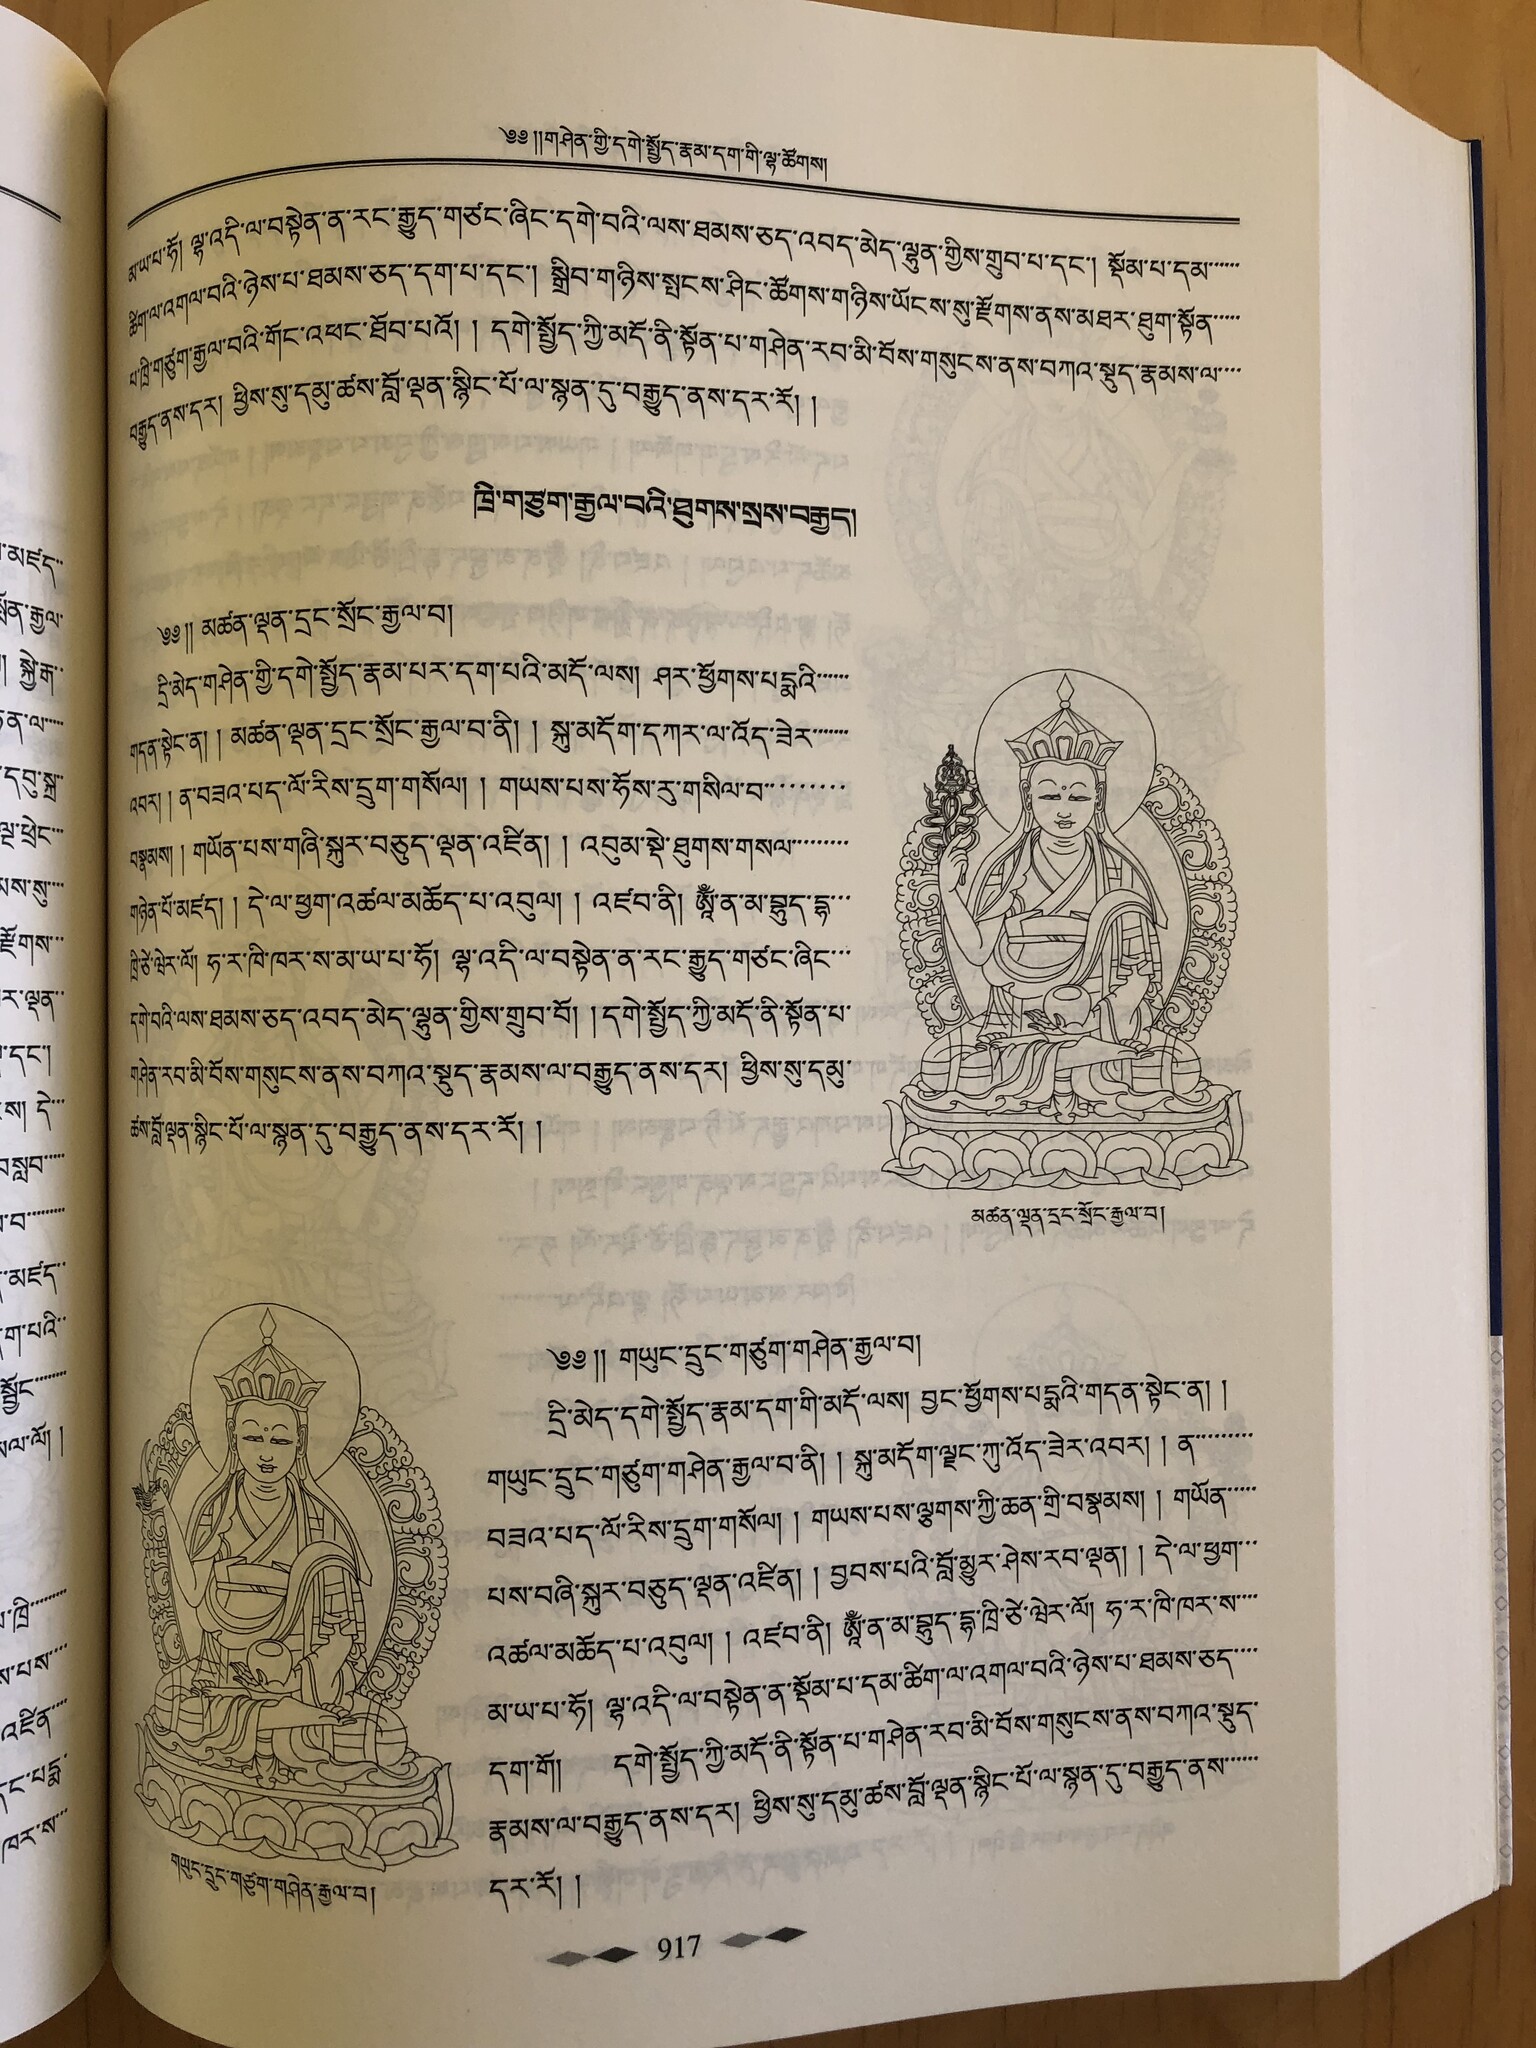 ༄༅།།གཤེན་གྱི་དགེ་སྤྱོད་རྣམ་དག་གི་ལྷ་ཚོགས།
མ་ཡ་པ་ཧོ། ལྷ་འདི་ལ་བསྟེན་ན་རང་རྒྱུད་གཙང་ཞིང་དགེ་བའི་ལས་ཐམས་ཅད་འབད་མེད་ལྷུན་གྱིས་གྲུབ་པ་དང་། སྡོམ་པ་དམ་
ཚིག་ལ་འགལ་བའི་ཉེས་པ་ཐམས་ཅད་དག་པ་དང་། སྒྲིབ་གཉིས་སྤངས་ཤིང་ཚོགས་གཉིས་ཡོངས་སུ་རྫོགས་ནས་མཐར་ཐུག་སྟོན་
པ་ཁྲི་གཙུག་རྒྱལ་བའི་གོང་འཕང་ཐོབ་པའོ། །དགེ་སྤྱོད་ཀྱི་མདོ་ནི་སྟོན་པ་གཤེན་རབ་མི་བོས་གསུངས་ནས་བཀའ་སྡུད་རྣམས་ལ་
བརྒྱུད་ནས་དར། ཕྱིས་སུ་དམུ་ཚས་བློ་ལྡན་སྙིང་པོ་ལ་སྙན་དུ་བརྒྱུད་ནས་དར་རོ། །
ཁྲི་གཙུག་རྒྱལ་བའི་ཐུགས་སྲས་བརྒྱད།
༄༅།། མཚན་ལྡན་དྲང་སྲོང་རྒྱལ་བ།
དྲི་མེད་གཤེན་གྱི་དགེ་སྤྱོད་རྣམ་པར་དག་པའི་མདོ་ལས། ཤར་ཕྱོགས་པདྨའི་
གདན་སྟེང་ན། །མཚན་ལྡན་དྲང་སྲོང་རྒྱལ་བ་ནི། །སྐུ་མདོག་དཀར་ལ་འོད་ཟེར་
འབར། །ན་བཟའ་པད་ལོ་རིས་དྲུག་གསོལ། །གཡས་པས་ཧོས་རུ་གསིལ་བ་
བསྣམས། །གཡོན་པས་གཞི་སྐུར་བཅུད་ལྡན་འཛིན། །འབུམ་སྡེ་ཐུགས་གསལ་
གཉེན་པོ་མཛད། །དེ་ལ་ཕྱག་འཚལ་མཆོད་པ་འབུལ། །འཛབ་ནི། ཨཱོྃ་ན་མ་བྷྲུད་དྷ་
ཁྲི་ཙེ་ཝེར་ལོ། ཧ་ར་ཁི་ཁར་ས་མ་ཡ་པ་ཧོ། ལྷ་འདི་ལ་བསྟེན་ན་རང་རྒྱུད་གཙང་ཞིང་
དགེ་བའི་ལས་ཐམས་ཅད་འབད་མེད་ལྷུན་གྱིས་གྲུབ་བོ། །དགེ་སྤྱོད་ཀྱི་མདོ་ནི་སྟོན་པ་
གཤེན་རབ་མི་བོས་གསུངས་ནས་བཀའ་སྡུད་རྣམས་ལ་བརྒྱུད་ནས་དར། ཕྱིས་སུ་དམུ་
ཚས་བློ་ལྡན་སྙིང་པོ་ལ་སྙན་དུ་བརྒྱུད་ནས་དར་རོ། །
མཚན་ལྡན་དྲང་སྲོང་རྒྱལ་བ།
༄༅།། གཡུང་དྲུང་གཙུག་གཤེན་རྒྱལ་བ།
དྲི་མེད་དགེ་སྤྱོད་རྣམ་དག་གི་མདོ་ལས། བྱང་ཕྱོགས་པདྨའི་གདན་སྟེང་ན། །
གཡུང་དྲུང་གཙུག་གཤེན་རྒྱལ་བ་ནི། །སྐུ་མདོག་ལྗང་ཀུ་འོད་ཟེར་འབར། །ན་
བཟའ་པད་ལོ་རིས་དྲུག་གསོལ། །གཡས་པས་ལྕགས་ཀྱི་ཆན་གྲི་བསྣམས། །གཡོན་
པས་བཞི་སྐུར་བཅུད་ལྡན་འཛིན། །བྱབས་པའི་བློ་མྱུར་ཤེས་རབ་ལྡན། །དེ་ལ་ཕྱག་
འཚལ་མཆོད་པ་འབུལ། །འཛབ་ནི། ཨཱོྃ་ན་མ་བྷྲུད་དྷ་ཁྲི་ཙེ་ཝེར་ལོ། ཧ་ར་ཁི་ཁར་ས་
མ་ཡ་པ་ཧོ། ལྷ་འདི་ལ་བསྟེན་ན་སྡོམ་པ་དམ་ཚིག་ལ་འགལ་བའི་ཉེས་པ་ཐམས་ཅད་
དག་གོ། དགེ་སྤྱོད་ཀྱི་མདོ་ནི་སྟོན་པ་གཤེན་རབ་མི་བོས་གསུངས་ནས་བཀའ་སྡུད་
རྣམས་ལ་བརྒྱུད་ནས་དར། ཕྱིས་སུ་དམུ་ཚས་བློ་ལྡན་སྙིང་པོ་ལ་སྙན་དུ་བརྒྱུད་ནས་
དར་རོ། །
གཡུང་དྲུང་གཙུག་གཤེན་རྒྱལ་བ།
917